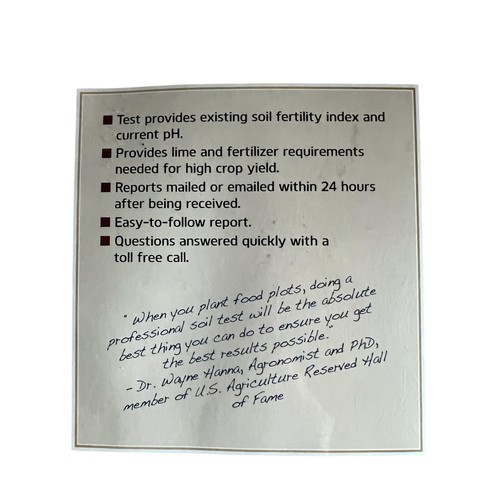 ■ Test provides existing soil fertility index and
current pH.
■ Provides lime and fertilizer requirements
needed for high crop yield.
■ Reports mailed or emailed within 24 hours
after being received.
■ Easy-to-follow report.
■ Questions answered quickly with a
toll free call.
"When you plant food plots, doing a
professional soil test will be the absolute
best thing you can do to ensure you get
the best results possible."
- Dr. Wayne Hanna, Agronomist and PhD,
member of U.S. Agriculture Reserved Hall
of Fame